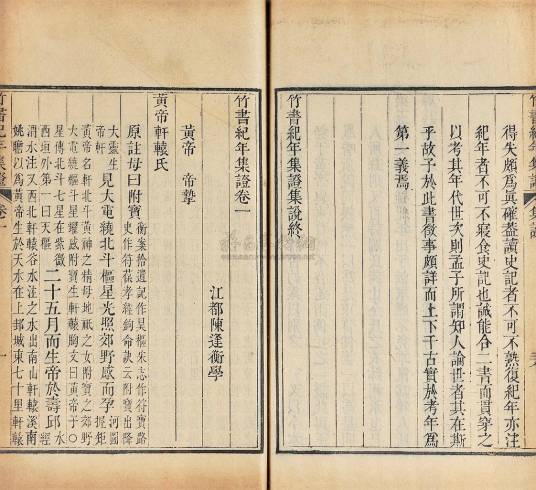 竹書紀年集證
集說
得失頗為真確蓋讀史記者不可不熟復紀年亦注
紀年者不可不寢食史記也誠能合二書而貫穿之
以考其年代世次則孟子所謂知人論世者其在斯
乎故予於此書徵事頗詳而上下千古實於考年為
第一義焉
竹書紀年集證集說終
竹書紀年集證卷一
江都陳逢衡學
黃帝 帝摯
黃帝軒轅氏
原註母曰附寶衡案拾遺記作昊樞朱志作符寶路史作符葆孝經鉤命訣云附寶出降
大靈生帝軒見大電繞北斗樞星光照郊野感而孕河圖握矩
黃帝名軒北斗黃神之精母地祇之女附寶之郊野大電繞斗樞星耀感附寶生軒轅胸文曰黃帝子〇
星傳北斗七星在紫微西垣外第一曰天樞二十五月而生帝於壽邱水經
渭水注又西北軒轅谷水注之水出南山軒轅溪南姚瞻以為黃帝生於天水在上邽城東七十里軒轅
竹書紀年集證
卷一